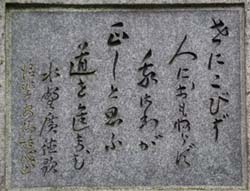 世にこびず
人におもねらず
我はわが
正しと思ふ
道を進まむ
水野廣徳歌